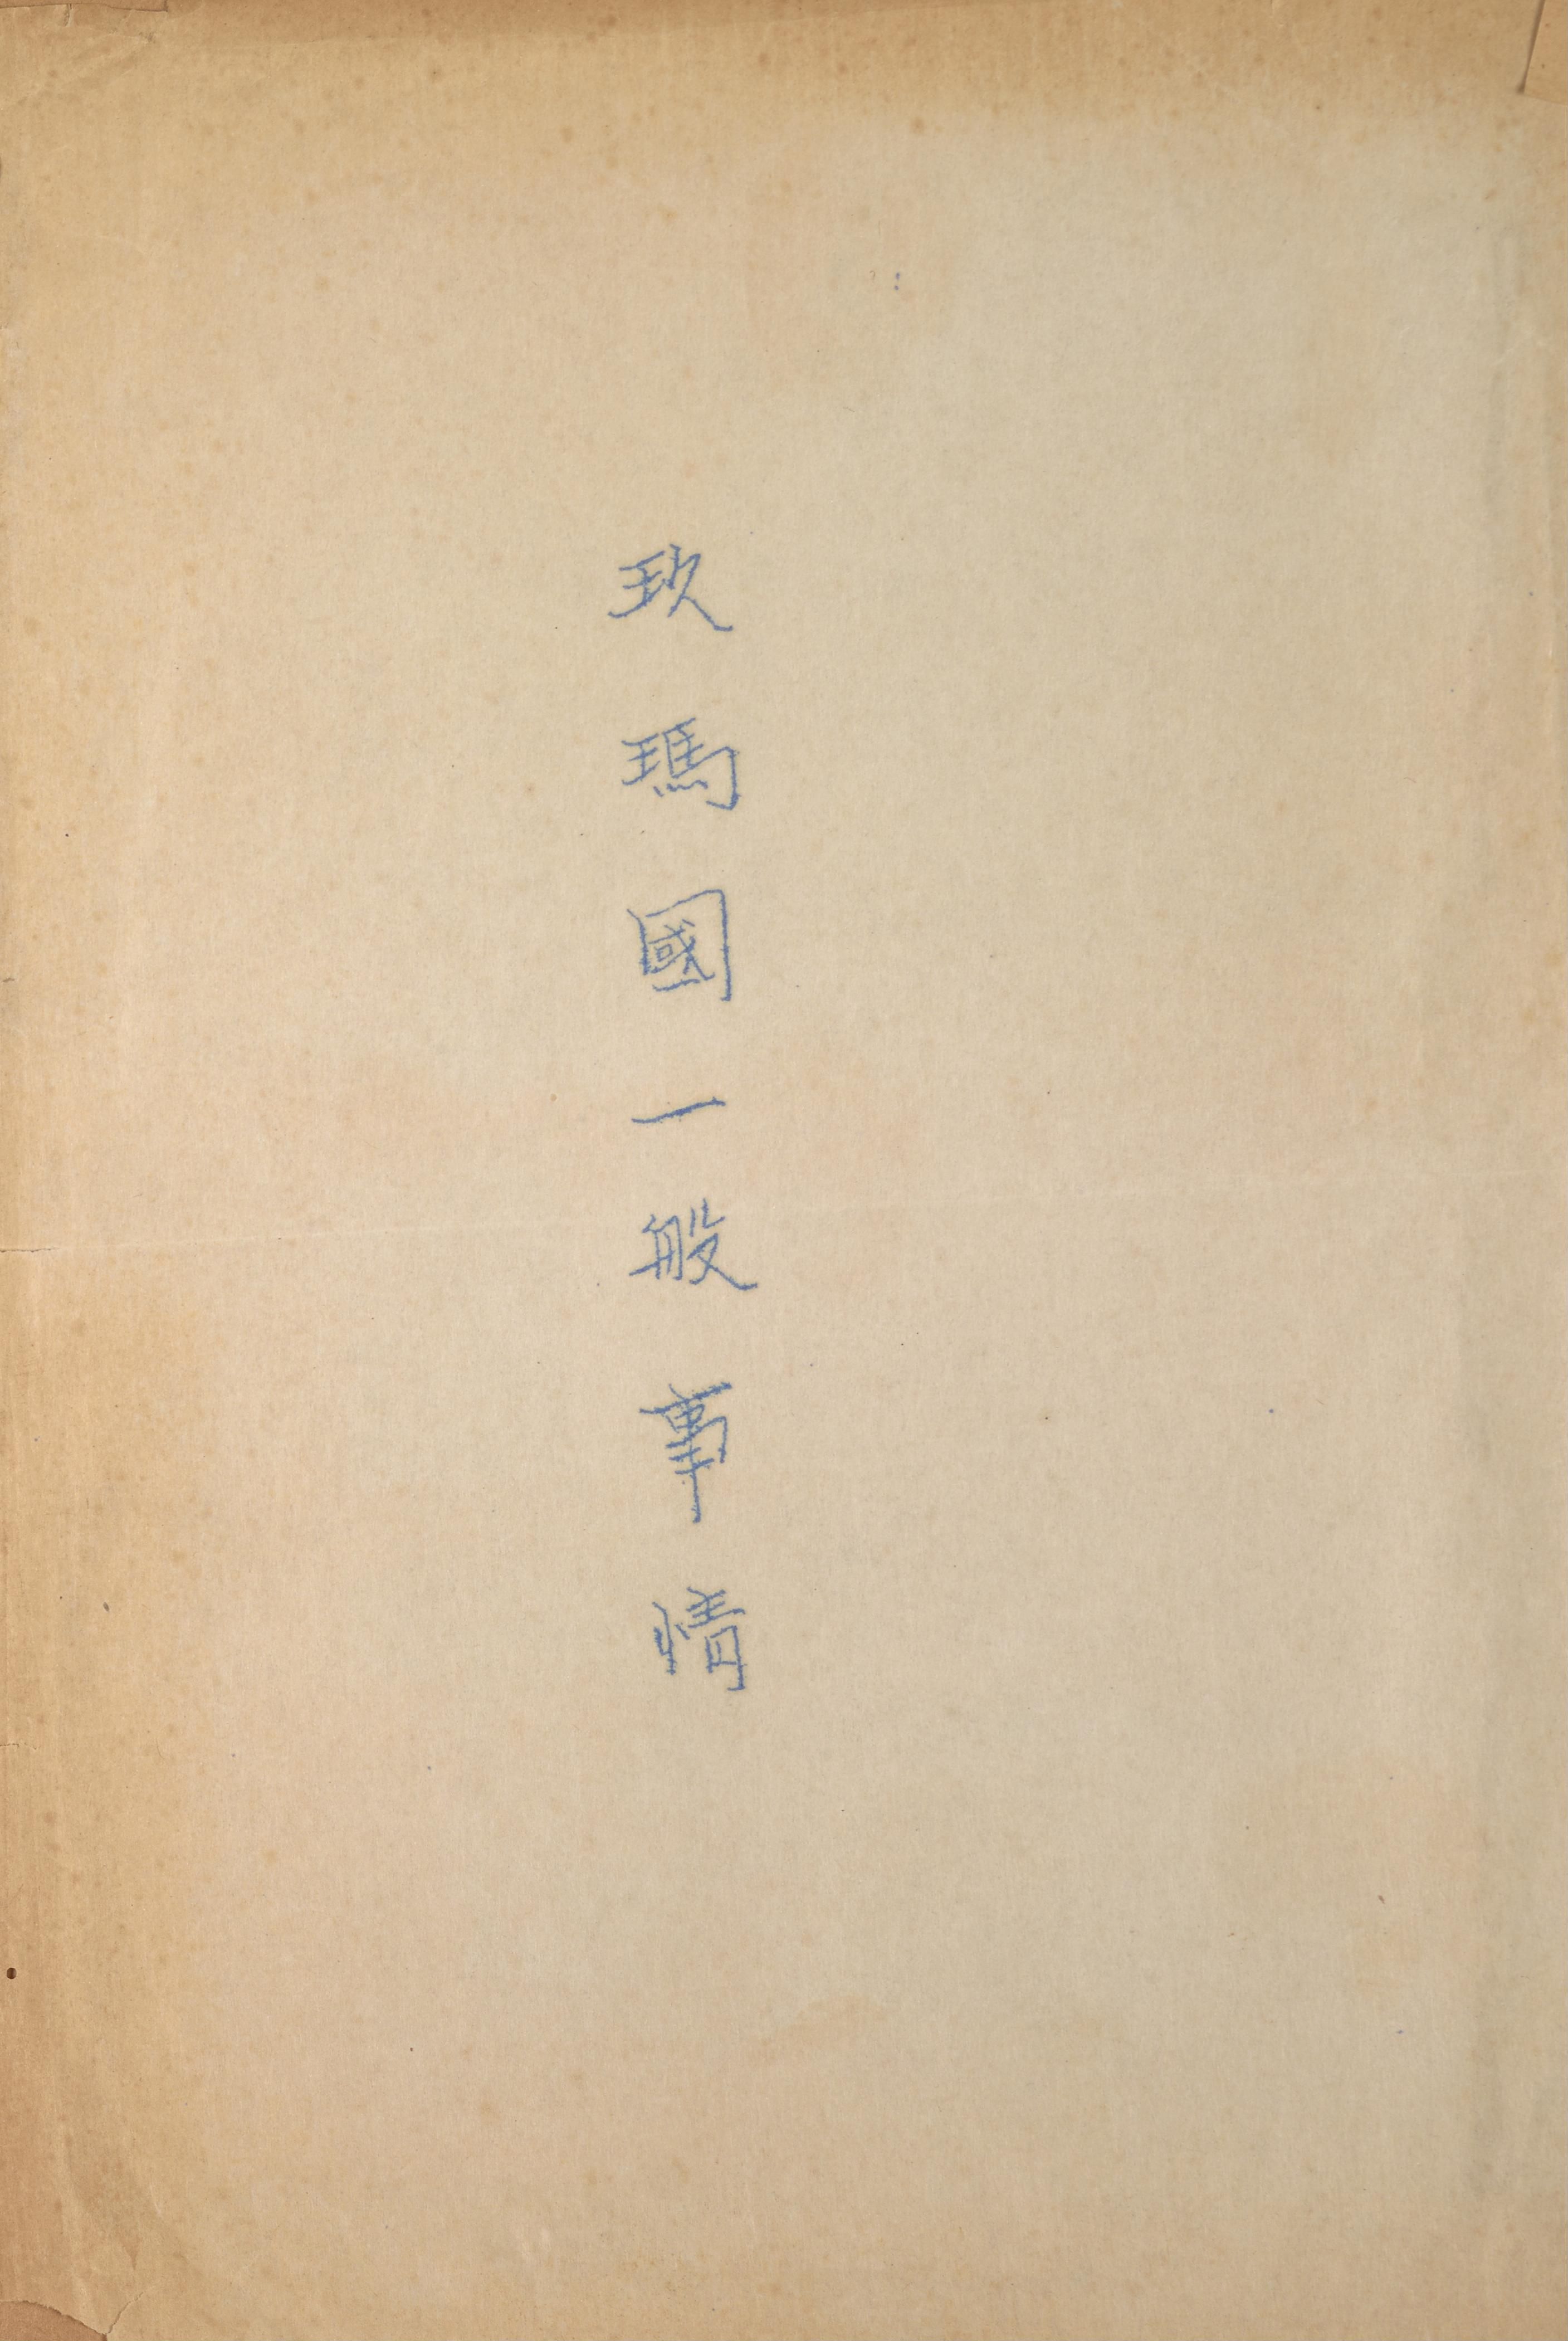 玖瑪國一般事情